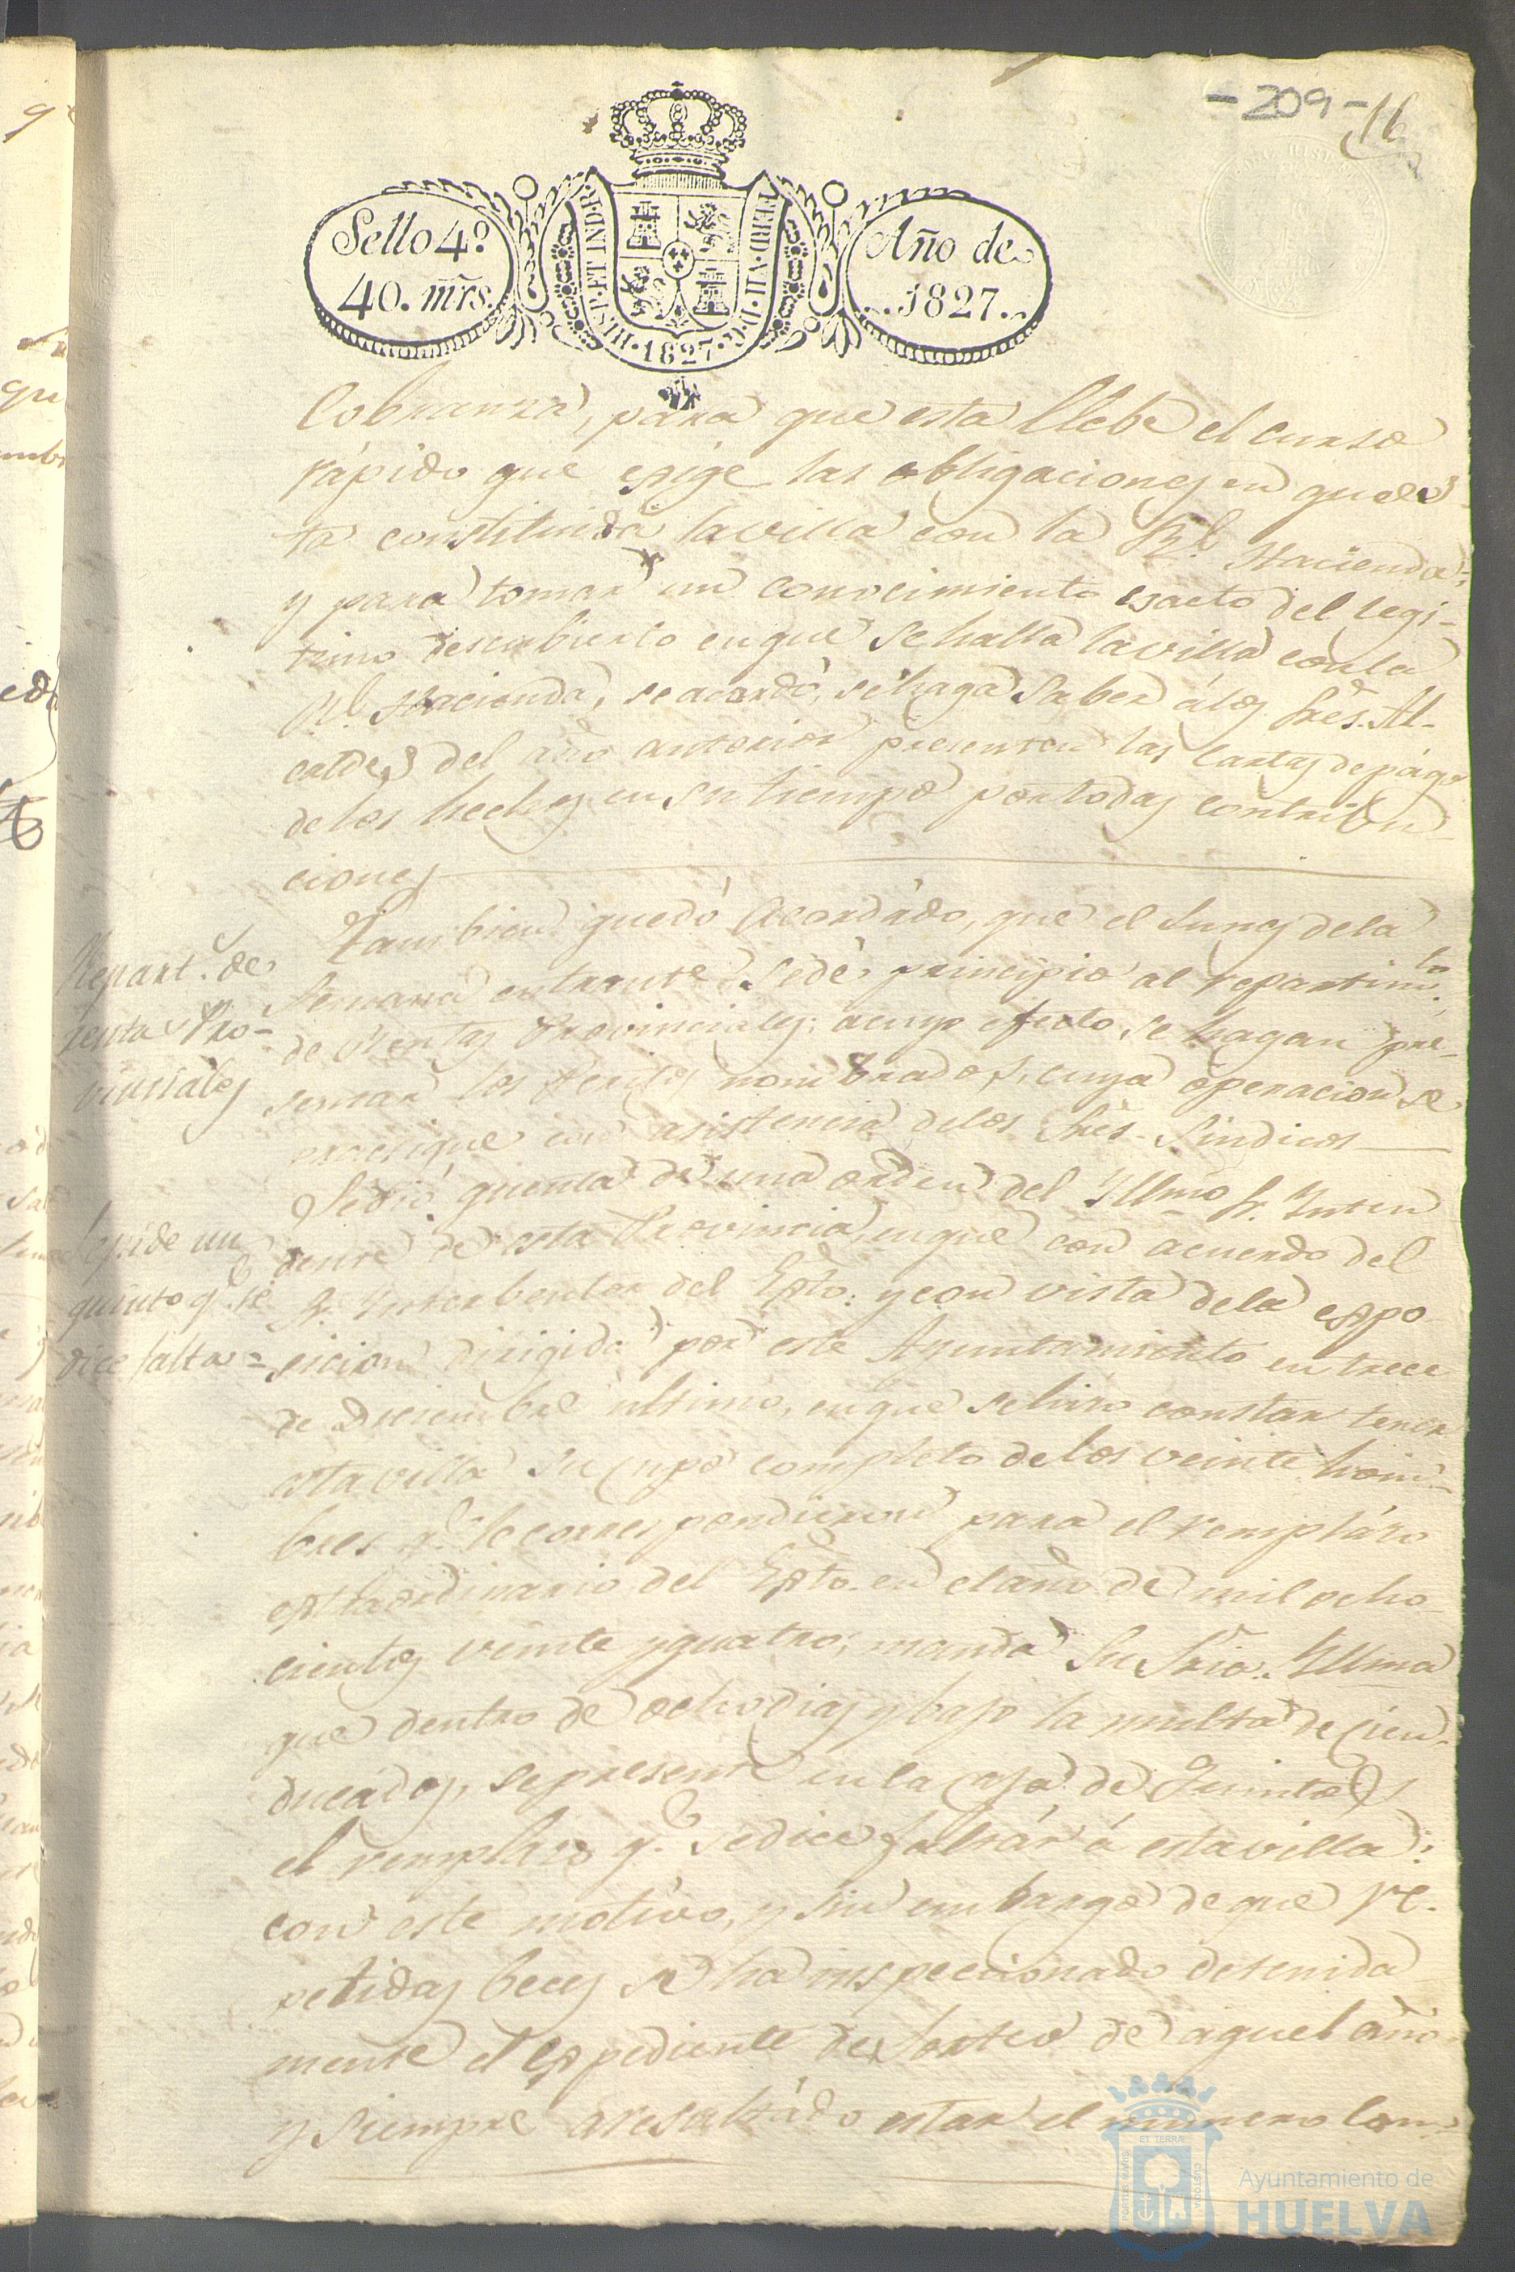 - 209 - 16
Sello 4º
40. mrs.
HISP. ET IND. R.
FERD. VII. D. G.
1827
Año de
1827.
Cobranza, para que esta llebe el curso
rápido que exige las obligaciones en que es-
ta constituida la villa con la Rl. Hacienda;
y para tomar un conocimiento esacto del legi-
timo descubierto en que se halla la villa con la
Rl. Hacienda, se acordó, se haga saber á los Sres. Al-
caldes del año anterior presenten las Cartas de pago
de los hechos en su tiempo por todas contribu-
ciones
Repart. de
rentas Pro-
vinciales
Tambien quedó acordádo, que el Lunes de la
Semana entrante, se dé principio al repartimto.
de Rentas Provinciales; a cuyo efecto se hagan pre-
sentar los Peritos nombrados, cuya operacion se
practique con asistencia de los Sres. Sindicos
Se pide un
quinto qe. se
dice falta =
Se dió quenta de una orden del Yllmo. Sr. Inten
dente de esta Provincia, en que con acuerdo del
Sr. Interbentor del Exto. y con vista de la expo-
sicion dirigida por este Ayuntamiento en trece
de Diciembre ultimo, en que se hizo constar tener
esta villa su cupo completo de los veinte hom-
bres qe. le correspondieron para el remplázo
extraordinario del Exto. en el año de mil ocho-
cientos veinte y quatro; manda Su Sria. Yllma
que dentro de ocho dias y bajo la multa de cien
ducádos, se presente en la Caja de Quintos
el remplazo qe. se dice faltár á esta villa:
con este motívo, y sin embargo de que re-
petidas beces se ha inspeccionado detenida-
mente el Expediente de Sorteo de aquel año
y siempre a resultádo estar el numero com-
PORTUS MARIS ET TERRÆ CUSTODIA
Ayuntamiento de
HUELVA